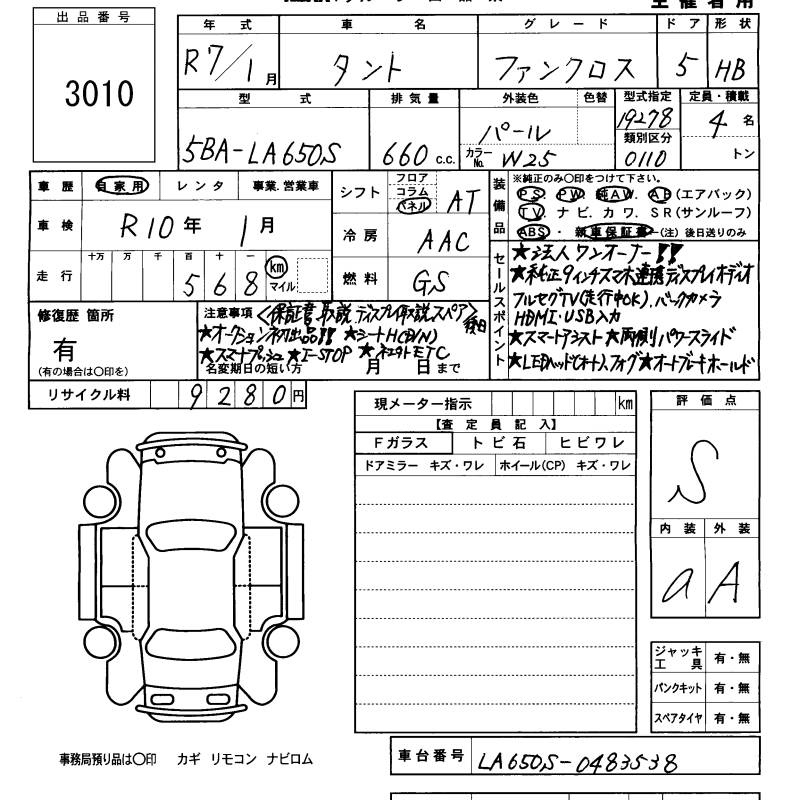 出品番号
3010
年式 車名 グレード ドア 形状
R7/1月 タント ファンクロス 5 HB
型式 排気量 外装色 色替 型式指定 定員・積載
5BA-LA650S 660 c.c. パール 19278 4名
カラーNo. W25 類別区分 0110 トン
車歴 自家用 レンタ 事業.営業車
車検 R10年 1月
走行 十万 万 千 百 十 一
568 km マイル
シフト フロア コラム パネル AT
冷房 AAC
燃料 GS
装備品
※純正のみ〇印をつけて下さい。
PS. PW. 純AW. AB(エアバック)
TV. ナビ. カワ. SR(サンルーフ)
ABS・新車保証書-(注) 後日送りのみ
セールスポイント
★法人ワンオーナー!!
★純正9インチスマホ連携ディスプレイオーディオ
フルセグTV(走行中OK).バックカメラ
HDMI・USB入力
★スマートアシスト★両側パワースライド
★LEDヘッド(オート).フォグ★オートブレーキホールド
修復歴 箇所
有
(有の場合は〇印を)
注意事項 <保証書 取説 ディスプレイ取説 スペア>後日
★オークション初出品!!★シートH(D/N)
★スマホプッシュ★I-STOP ★ ETC
名変期日の短い方 月 日まで
リサイクル料 9280円
現メーター指示 km
【査定員記入】
Fガラス トビ石 ヒビワレ
ドアミラー キズ・ワレ ホイール(CP) キズ・ワレ
評価点
S
内装 外装
a A
ジャッキ工具 有・無
パンクキット 有・無
スペアタイヤ 有・無
事務局預り品は〇印 カギ リモコン ナビロム
車台番号 LA650S-0483538